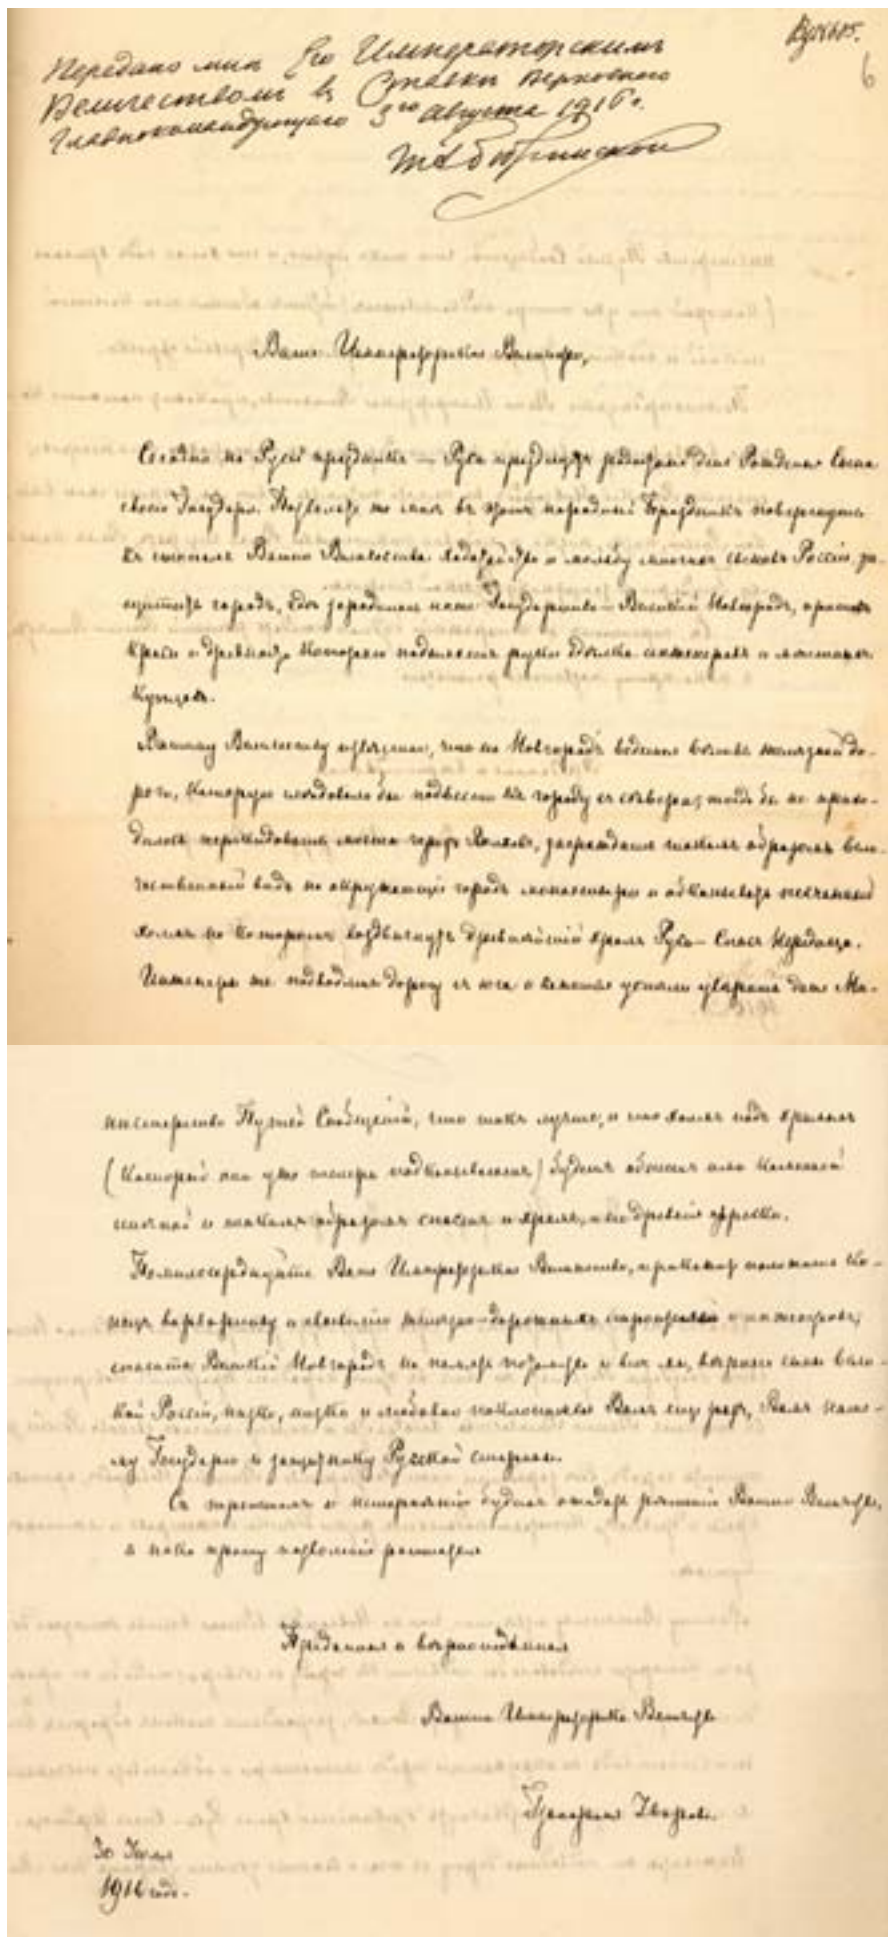 Передано мнѣ Его Императорскимъ
Величествомъ въ Ставкѣ Верховнаго
Главнокомандующаго 3го Августа 1916г.
6
Ваше Императорское Величество,
Сегодня на Руси праздникъ — Русь празднуетъ радостно день Рожденія Сына
своего Государя. Позвольте же мнѣ въ этотъ народный праздникъ повергнуть
къ стопамъ Вашего Величества ходатайство и мольбу многихъ сыновъ Россіи за-
щитить городъ, гдѣ зародилось наше Государство — Великій Новгородъ, противъ
красы и древности котораго поднялись руки инженеровъ и мѣстныхъ
купцовъ.
Вашему Величеству извѣстно, что на Новгородъ ведется вѣтвь желѣзной до-
роги, которую слѣдовало бы подвести къ городу съ сѣвера; тогда бы не прихо-
дилось перекидывать моста черезъ Волховъ, заграждая такимъ образомъ вели-
чественный видъ на окружающіе городъ монастыри и обкапывать песчаный
холмъ на которомъ воздвигнутъ древнѣйшій храмъ Руси — Спасъ Нередица.
Инженеры же подводятъ дорогу съ юга и успѣли увѣрить даже Ми-
нистерство Путей Сообщенія, что такъ лучше, и что холмъ подъ храмомъ
(который они уже теперь подкапываютъ) будетъ обнесенъ каменной
стѣной и такимъ образомъ спасенъ и храмъ, и его древнія фрески.
Помилосердуйте Ваше Императорское Величество, и прикажите положить ко-
нецъ варварству и своеволію желѣзно-дорожныхъ строителей и инженеровъ,
спасите Великій Новгородъ на память потомству и всѣ мы, вѣрные сыны Вели-
кой Россіи, низко, низко и любовно поклонимся Вамъ еще разъ, Вамъ наше-
му Государю и защитнику Русской старины.
Съ трепетомъ и нетерпѣніемъ будемъ ожидать рѣшенія Вашего Величества,
Преданная и вѣрноподданная
Вашего Императорскаго Величества
30 Іюля
1916 года.